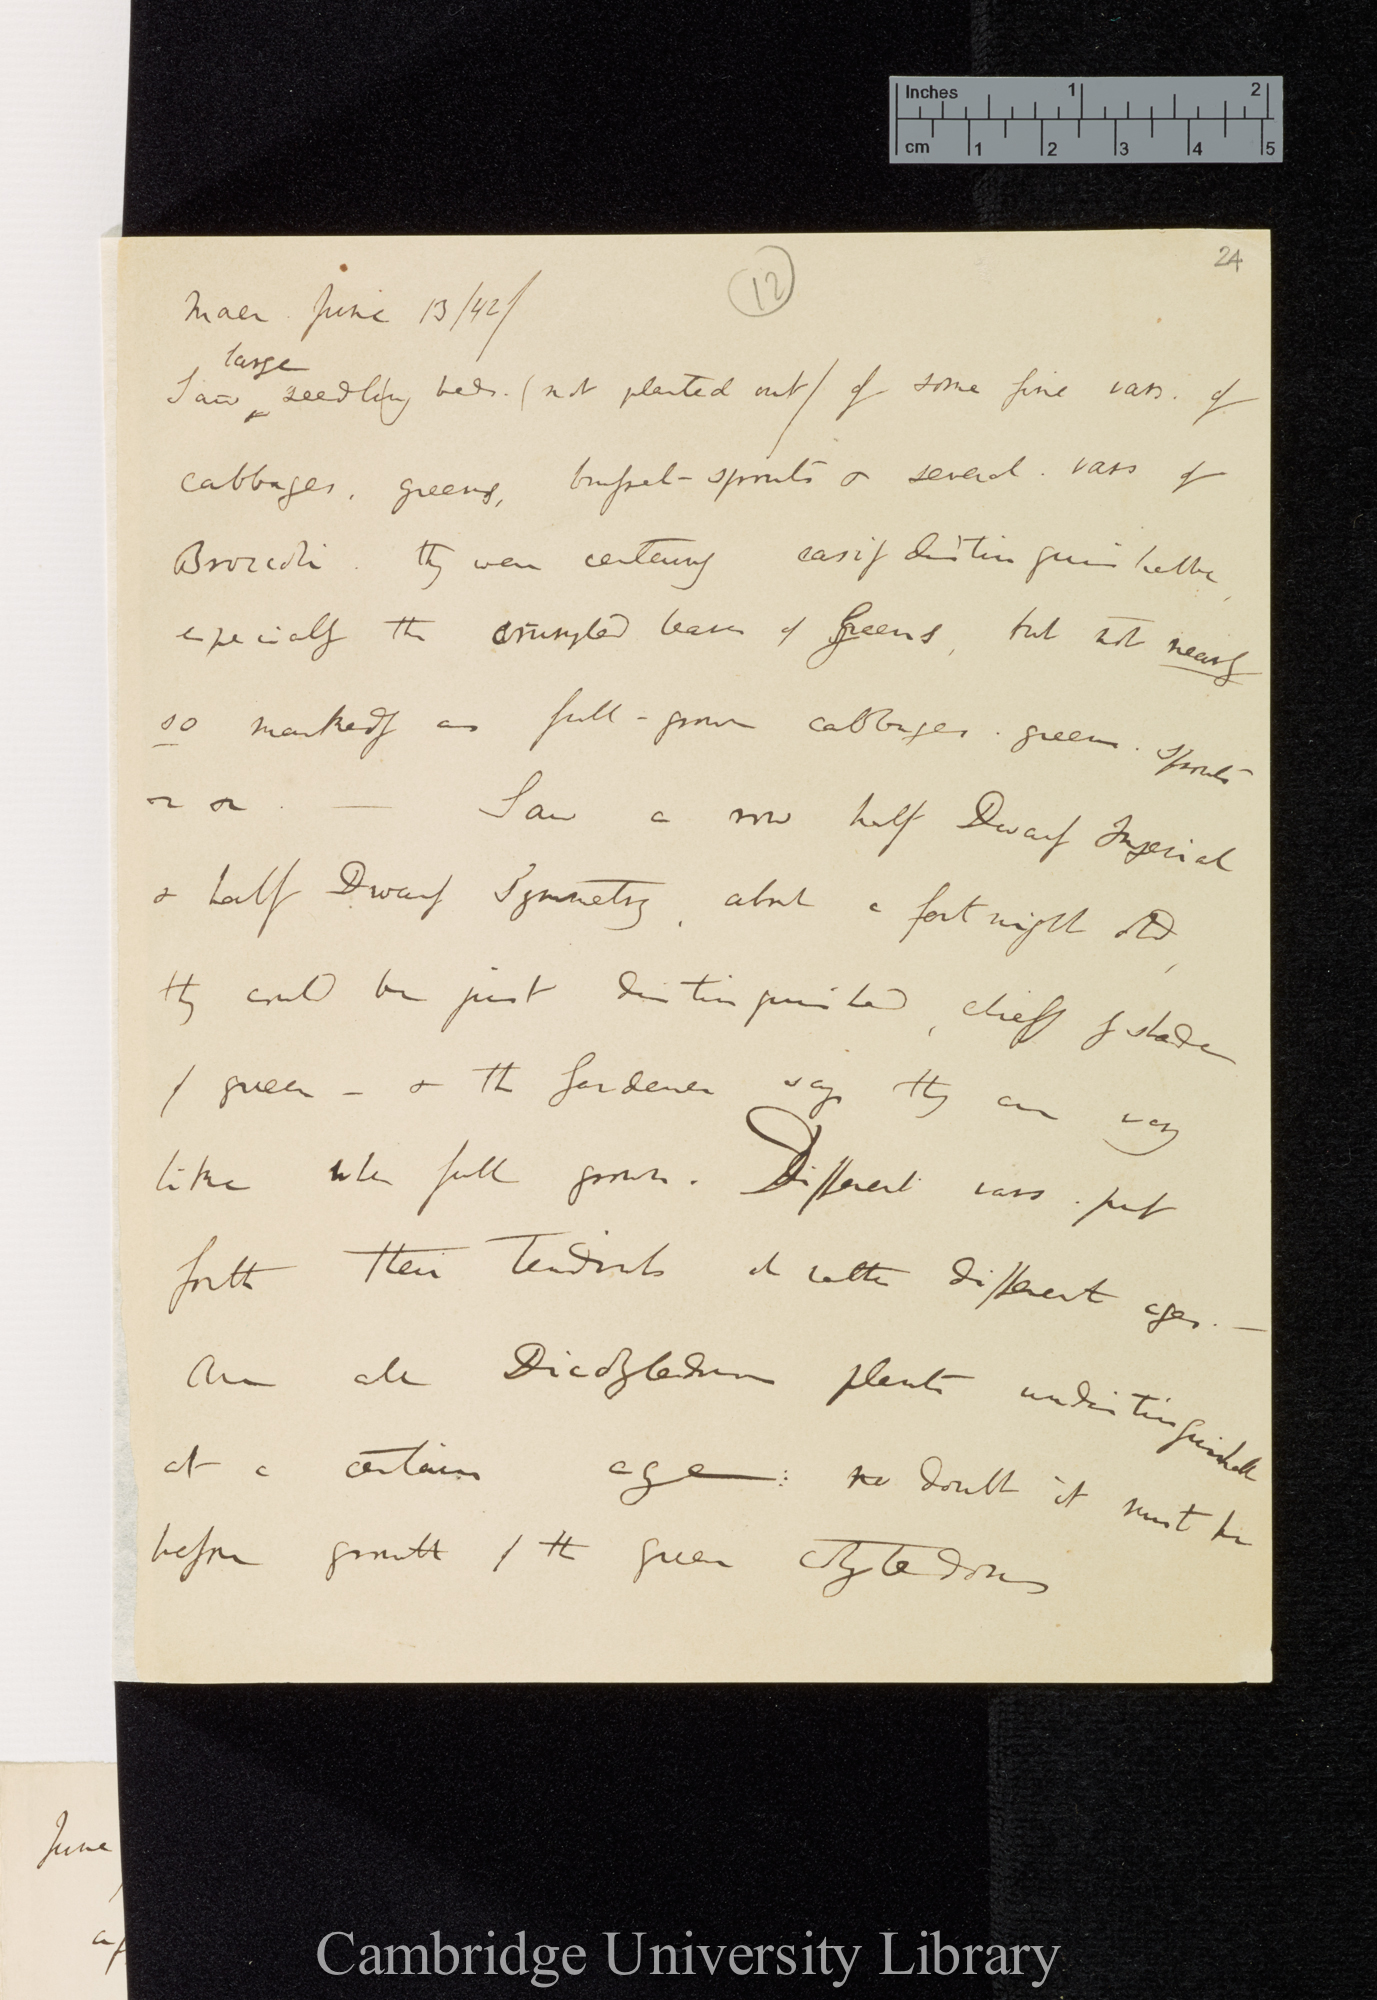 Inches 1 2
cm 1 2 3 4 5
24
12
Maer. June 13/42/
large
Saw ^ seedling beds. (not planted out) of some fine vars. of
cabbages, greens, brussel-sprouts & several. vars of
Broccoli. they were certainly easily distinguishable,
especially the crumpled leaves of Greens, but not nearly
so markedly as full-grown cabbages. greens. sprouts
&c &c. — Saw a row half Dwarf Imperial
& half Dwarf Symmetry, about a fortnight old,
they could be just distinguished, chiefly by shade
of green — & the Gardener says they are very
like when full grown. Different vars. put
forth their tendrils at rather different ages. —
Are all Dicotyledonous plants undistinguishable
at a certain age: no doubt it must be
before growth of the green cotyledons
June
Cambridge University Library